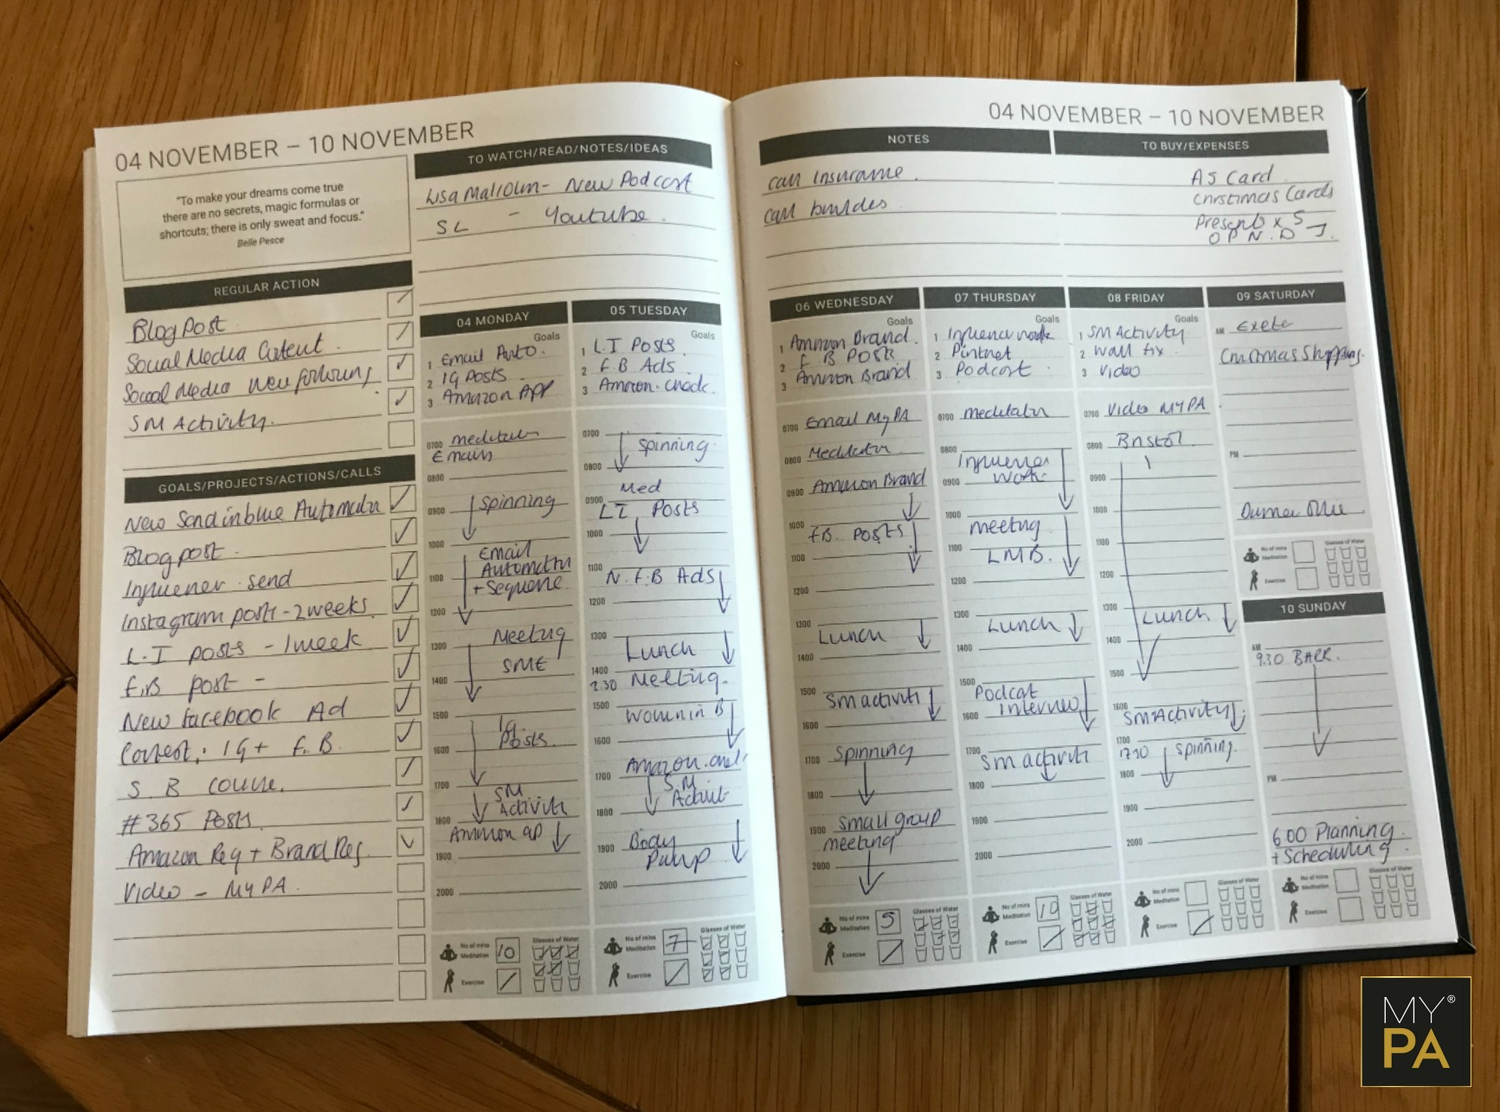 04 NOVEMBER – 10 NOVEMBER
"To make your dreams come true
there are no secrets, magic formulas or
shortcuts; there is only sweat and focus."
Belle Pesce
REGULAR ACTION
Blog Post
Social Media Content.
Social Media new following
SM Activity.
GOALS/PROJECTS/ACTIONS/CALLS
New Sendinblue Automation
Blog post.
Influencer send
Instagram posts - 2 weeks
L.I posts - 1 week
F.B post -
New Facebook Ad
Contest: IG + F.B.
S B course.
#365 Posts
Amazon Reg + Brand Reg.
Video - My PA.
TO WATCH/READ/NOTES/IDEAS
Lisa Malcolm - New Podcast
SL - Youtube.
04 MONDAY
Goals
1 Email Auto.
2 IG Posts
3 Amazon APP
0700 meditation
Emails
0800
0900 Spinning
1000 Email
Automation
1100 + Sequence
1200
1300 Meeting
SME
1400
1500 IG
Posts.
1600
1700 SM
Activity
1800 Amazon ap
1900
2000
No of mins
Meditation 10
Glasses of Water
Exercise
05 TUESDAY
Goals
1 L.I Posts
2 F.B Ads.
3 Amazon check.
0700 Spinning.
0800
Med
0900 LI Posts
1000
1100 N.F.B Ads
1200
1300 Lunch
1400
2.30 Meeting.
1500 Women in B
1600
Amazon
1700 S.M
1800
Body
1900 Pump
2000
No of mins
Meditation 7
Glasses of Water
Exercise
04 NOVEMBER – 10 NOVEMBER
NOTES
Call Insurance.
Call builders.
TO BUY/EXPENSES
A5 Card
Christmas Cards
Presents x 5
O P N. D J.
06 WEDNESDAY
Goals
1 Amazon Brand.
2 F B Posts
3 Amazon Brand
0700 Email My PA
0800 Meditation
0900 Amazon Brand
1000 F.B. Posts
1100
1200
1300 Lunch
1400
1500 SM activity
1600
1700 Spinning
1800
1900 Small group
meeting
2000
No of mins
Meditation 5
Glasses of Water
Exercise
07 THURSDAY
Goals
1
2
3 Podcast
0700 meditation
0800 Influencer
0900 Work
1000 meeting
1100 LMB.
1200
1300 Lunch
1400
1500 Podcast
1600 Interview
1700 SM activity
1800
1900
2000
No of mins
Meditation 10
Glasses of Water
Exercise
08 FRIDAY
Goals
1 SM Activity
2 Wall fix.
3 Video
0700 Video MYPA
0800 Bristol
0900
1000
1100
1200
1300 Lunch
1400
1500
1600 SM Activity
1700
1730 Spinning.
1800
1900
2000
No of mins
Meditation
Glasses of Water
Exercise
09 SATURDAY
AM Exeter
Christmas Shopping.
PM
No of mins
Meditation
Glasses of Water
Exercise
10 SUNDAY
AM
9.30
PM
6.00 Planning
+ Scheduling.
No of mins
Meditation
Glasses of Water
Exercise
MY®
PA